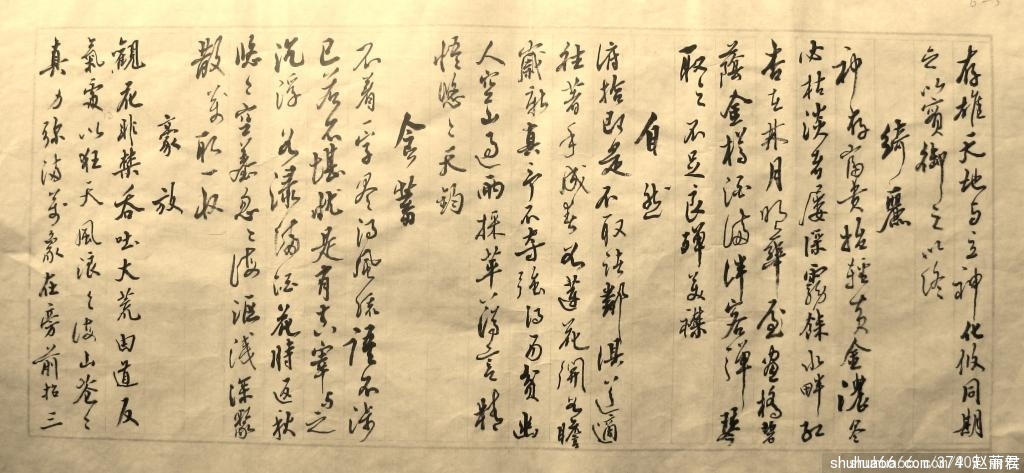 存雄天地与立神化攸同期
之以實御之以终
绮麗
神存富贵始轻黄金濃尽
必枯淡者屡深霧餘水畔红
杏在林月明華屋画橋碧
蔭金樽酒满伴客弹琴
取之不足良殫美襟
自然
俯拾即是不取诸鄰俱道適
往著手成春如逢花開如瞻
歲新真予不奪强得易贫幽
人空山過雨採苹薄言情
悟悠々天鈞
含蓄
不着一字尽得風流語不涉
已若不堪忧是有真宰与之
沉浮如渌满酒花時返秋
悠々空塵忽々海漚浅深聚
散萬取一收
豪放
觀花非禁吞吐大荒由道反
氣處以狂天風浪々海山苍々
真力弥满萬象在旁前招三
shuhua66.com 37409 赵萧君